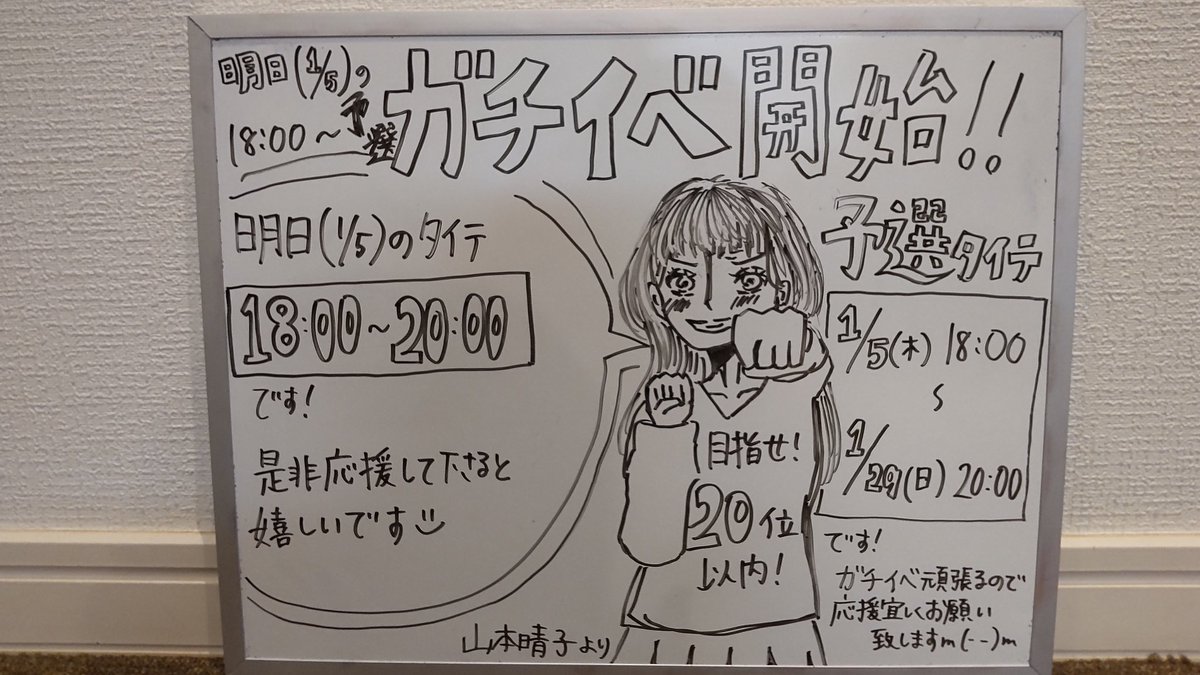 明日(1/5)の
18:00～予選
ガチイベ開始!!
明日(1/5)のタイテ
18:00～20:00
です!
是非応援して下さると
嬉しいです
目指せ!
20位
以内!
予選タイテ
1/5(木) 18:00
～
1/29(日) 20:00
です!
ガチイベ頑張るので
応援宜しくお願い
致しますm(--)m
山本晴子より